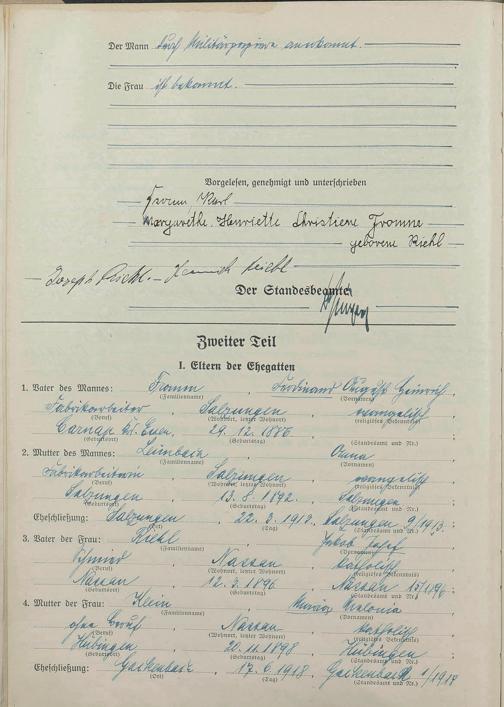 Der Mann durch Militärpapiere anerkannt.
Die Frau ist bekannt.
Vorgelesen, genehmigt und unterschrieben
Karl
Margarethe Henriette Christiene Fromme
geborene Riehl
Joseph Riehl – Heinrich
Der Standesbeamte
Zweiter Teil
I. Eltern der Ehegatten
1. Vater des Mannes: Fromm, Ferdinand August Heinrich,
(Familienname) (Vornamen)
Fabrikarbeiter, Salzungen, evangelisch
(Beruf) (Wohnort, letzter Wohnort) (religiöses Bekenntnis)
Carnap 29. 12. 1886
(Geburtsort) (Geburtstag) (Standesamt und Nr.)
2. Mutter des Mannes: Leimbach, Anna
(Familienname) (Vornamen)
Fabrikarbeiterin, Salzungen, evangelisch
(Beruf) (Wohnort, letzter Wohnort) (religiöses Bekenntnis)
Salzungen, 13. 8. 1892. Salzungen
(Geburtsort) (Geburtstag) (Standesamt und Nr.)
Eheschließung: Salzungen, 22. 3. 1913. Salzungen 9/1913;
(Ort) (Tag) (Standesamt und Nr.)
3. Vater der Frau: Riehl, Jakob Josef
(Familienname) (Vornamen)
Nassau, katholisch
(Beruf) (Wohnort, letzter Wohnort) (religiöses Bekenntnis)
Nassau, 12. 3. 1896, Nassau 15/1896;
(Geburtsort) (Geburtstag) (Standesamt und Nr.)
4. Mutter der Frau: Klein, Maria
(Familienname) (Vornamen)
ohne Beruf, Nassau, katholisch
(Beruf) (Wohnort, letzter Wohnort) (religiöses Bekenntnis)
Hübingen, 20. 11. 1898, Hübingen
(Geburtsort) (Geburtstag) (Standesamt und Nr.)
Eheschließung: Gackenbach, 17. 6. 1918, Gackenbach 1/1918
(Ort) (Tag) (Standesamt und Nr.)